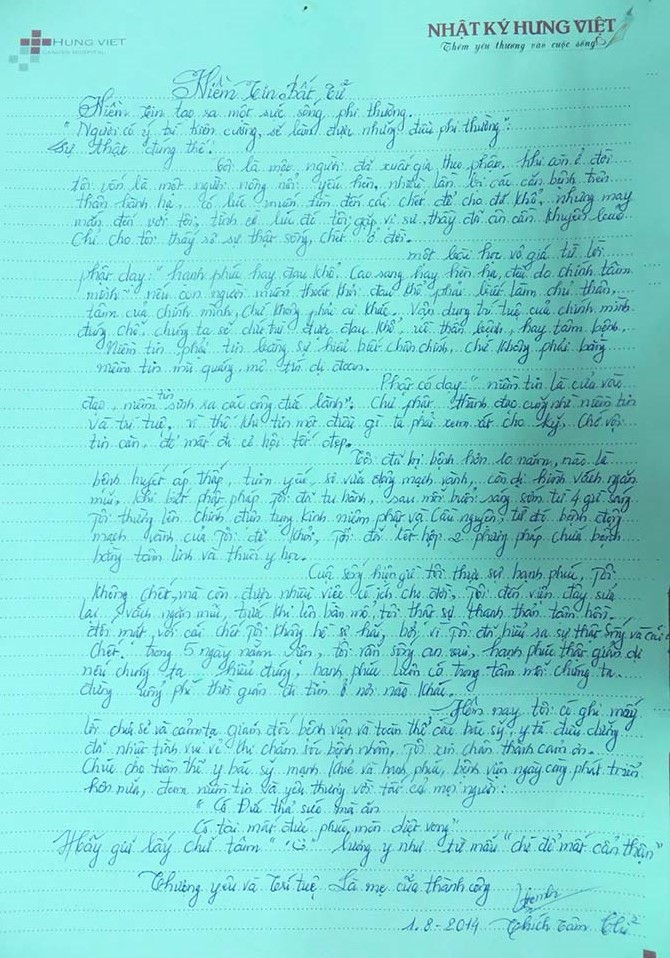 HUNG VIET
CANCER HOSPITAL
NHẬT KÝ HƯNG VIỆT
Thêm yêu thương vào cuộc sống
Niềm tin bất tử
Niềm tin tạo ra một sức sống phi thường.
"Người có ý tư kiên cường, sẽ làm được những điều phi thường":
Sự thật đúng thế.
Tôi là một người đã xuất gia theo phật, khi còn ở đời
tôi vốn là một người nóng nổi, yếu hèn, nhiều lần bị các căn bệnh trên
thân hành hạ, có lúc muốn tìm đến cái chết để cho đỡ khổ, nhưng may
mắn đến với tôi, tình cờ lúc đó tôi gặp vị sư thầy đã ân cần khuyên
Chỉ cho tôi thấy rõ sự thật sống, chết ở đời.
một bài học vô giá từ lời
phật dạy: "hạnh phúc hay đau khổ, cao sang hay hèn hạ, đều do chính tâm
mình" nếu con người muốn thoát khỏi đau khổ phải biết làm chủ thân,
tâm của chính mình, chứ không phải ai khác. Vận dụng trí tuệ của chính mình
đúng chỗ, chúng ta sẽ chữa trị được đau khổ về thân bệnh, hay tâm bệnh.
Niềm tin phải tin bằng sự hiểu biết chân chính, chứ không phải bằng
niềm tin mù quáng, mê tín dị đoan.
Phật có dạy "niềm tin là cửa vào
đạo, niềm tin sinh ra các công đức lành". Chư phật thành đạo cũng nhờ niềm tin
và trí tuệ, vì thế khi tin một điều gì ta phải xem xét cho kỹ, chớ vội
tin càn, để mất đi cơ hội tốt đẹp.
Tôi đã bị bệnh hơn 10 năm, nào là
bệnh huyết áp thấp, tim yếu, sơ vữa động mạch vành, còn dị hình vách ngăn
mũi, khi biết phật pháp tôi đã tu hành, sau mỗi buổi sáng sớm từ 4 giờ sáng
tôi thường lên chính điện tụng kinh niệm phật và cầu nguyện, từ đó bệnh động
mạch vành của tôi đã khỏi, tôi đã kết hợp 2 phương pháp chữa bệnh
bằng tâm linh và thuốc y học.
Cuộc sống hiện giờ tôi thực sự hạnh phúc, tôi
không chết, mà còn được nhiều việc có ích cho đời, tôi đến viện đây sửa
lại vách ngăn mũi, trước khi lên bàn mổ, tôi thật sự thanh thản tâm hồn.
đối mặt với cái chết tôi không hề sợ hãi, bởi vì tôi đã hiểu ra sự thật sống và cái
chết. trong 5 ngày nằm viện, tôi vẫn sống an vui, hạnh phúc thật giản dị
nếu chúng ta hiểu đúng, hạnh phúc luôn có trong tâm mỗi chúng ta.
đừng uổng phí thời gian đi tìm ở nơi nào khác.
Hôm nay tôi có ghi mấy
lời chia sẻ và cảm tạ, giám đốc bệnh viện và toàn thể các bác sỹ, y tá điều dưỡng
đã nhiệt tình vui vẻ chăm sóc bệnh nhân, tôi xin chân thành cảm ơn.
Chúc cho toàn thể y bác sỹ mạnh khỏe và hạnh phúc, bệnh viện ngày càng phát triển
hơn nữa, đem niềm tin và yêu thương với tất cả mọi người:
"Có Đức tha sức mà ăn
Có tài mất đức phúc mòn diệt vong"
Hãy giữ lấy chữ tâm lương y như từ mẫu "chớ để mất cẩn thận"
Thương yêu và Trí tuệ là mẹ của thành công
1.8-2014 Thích Tâm